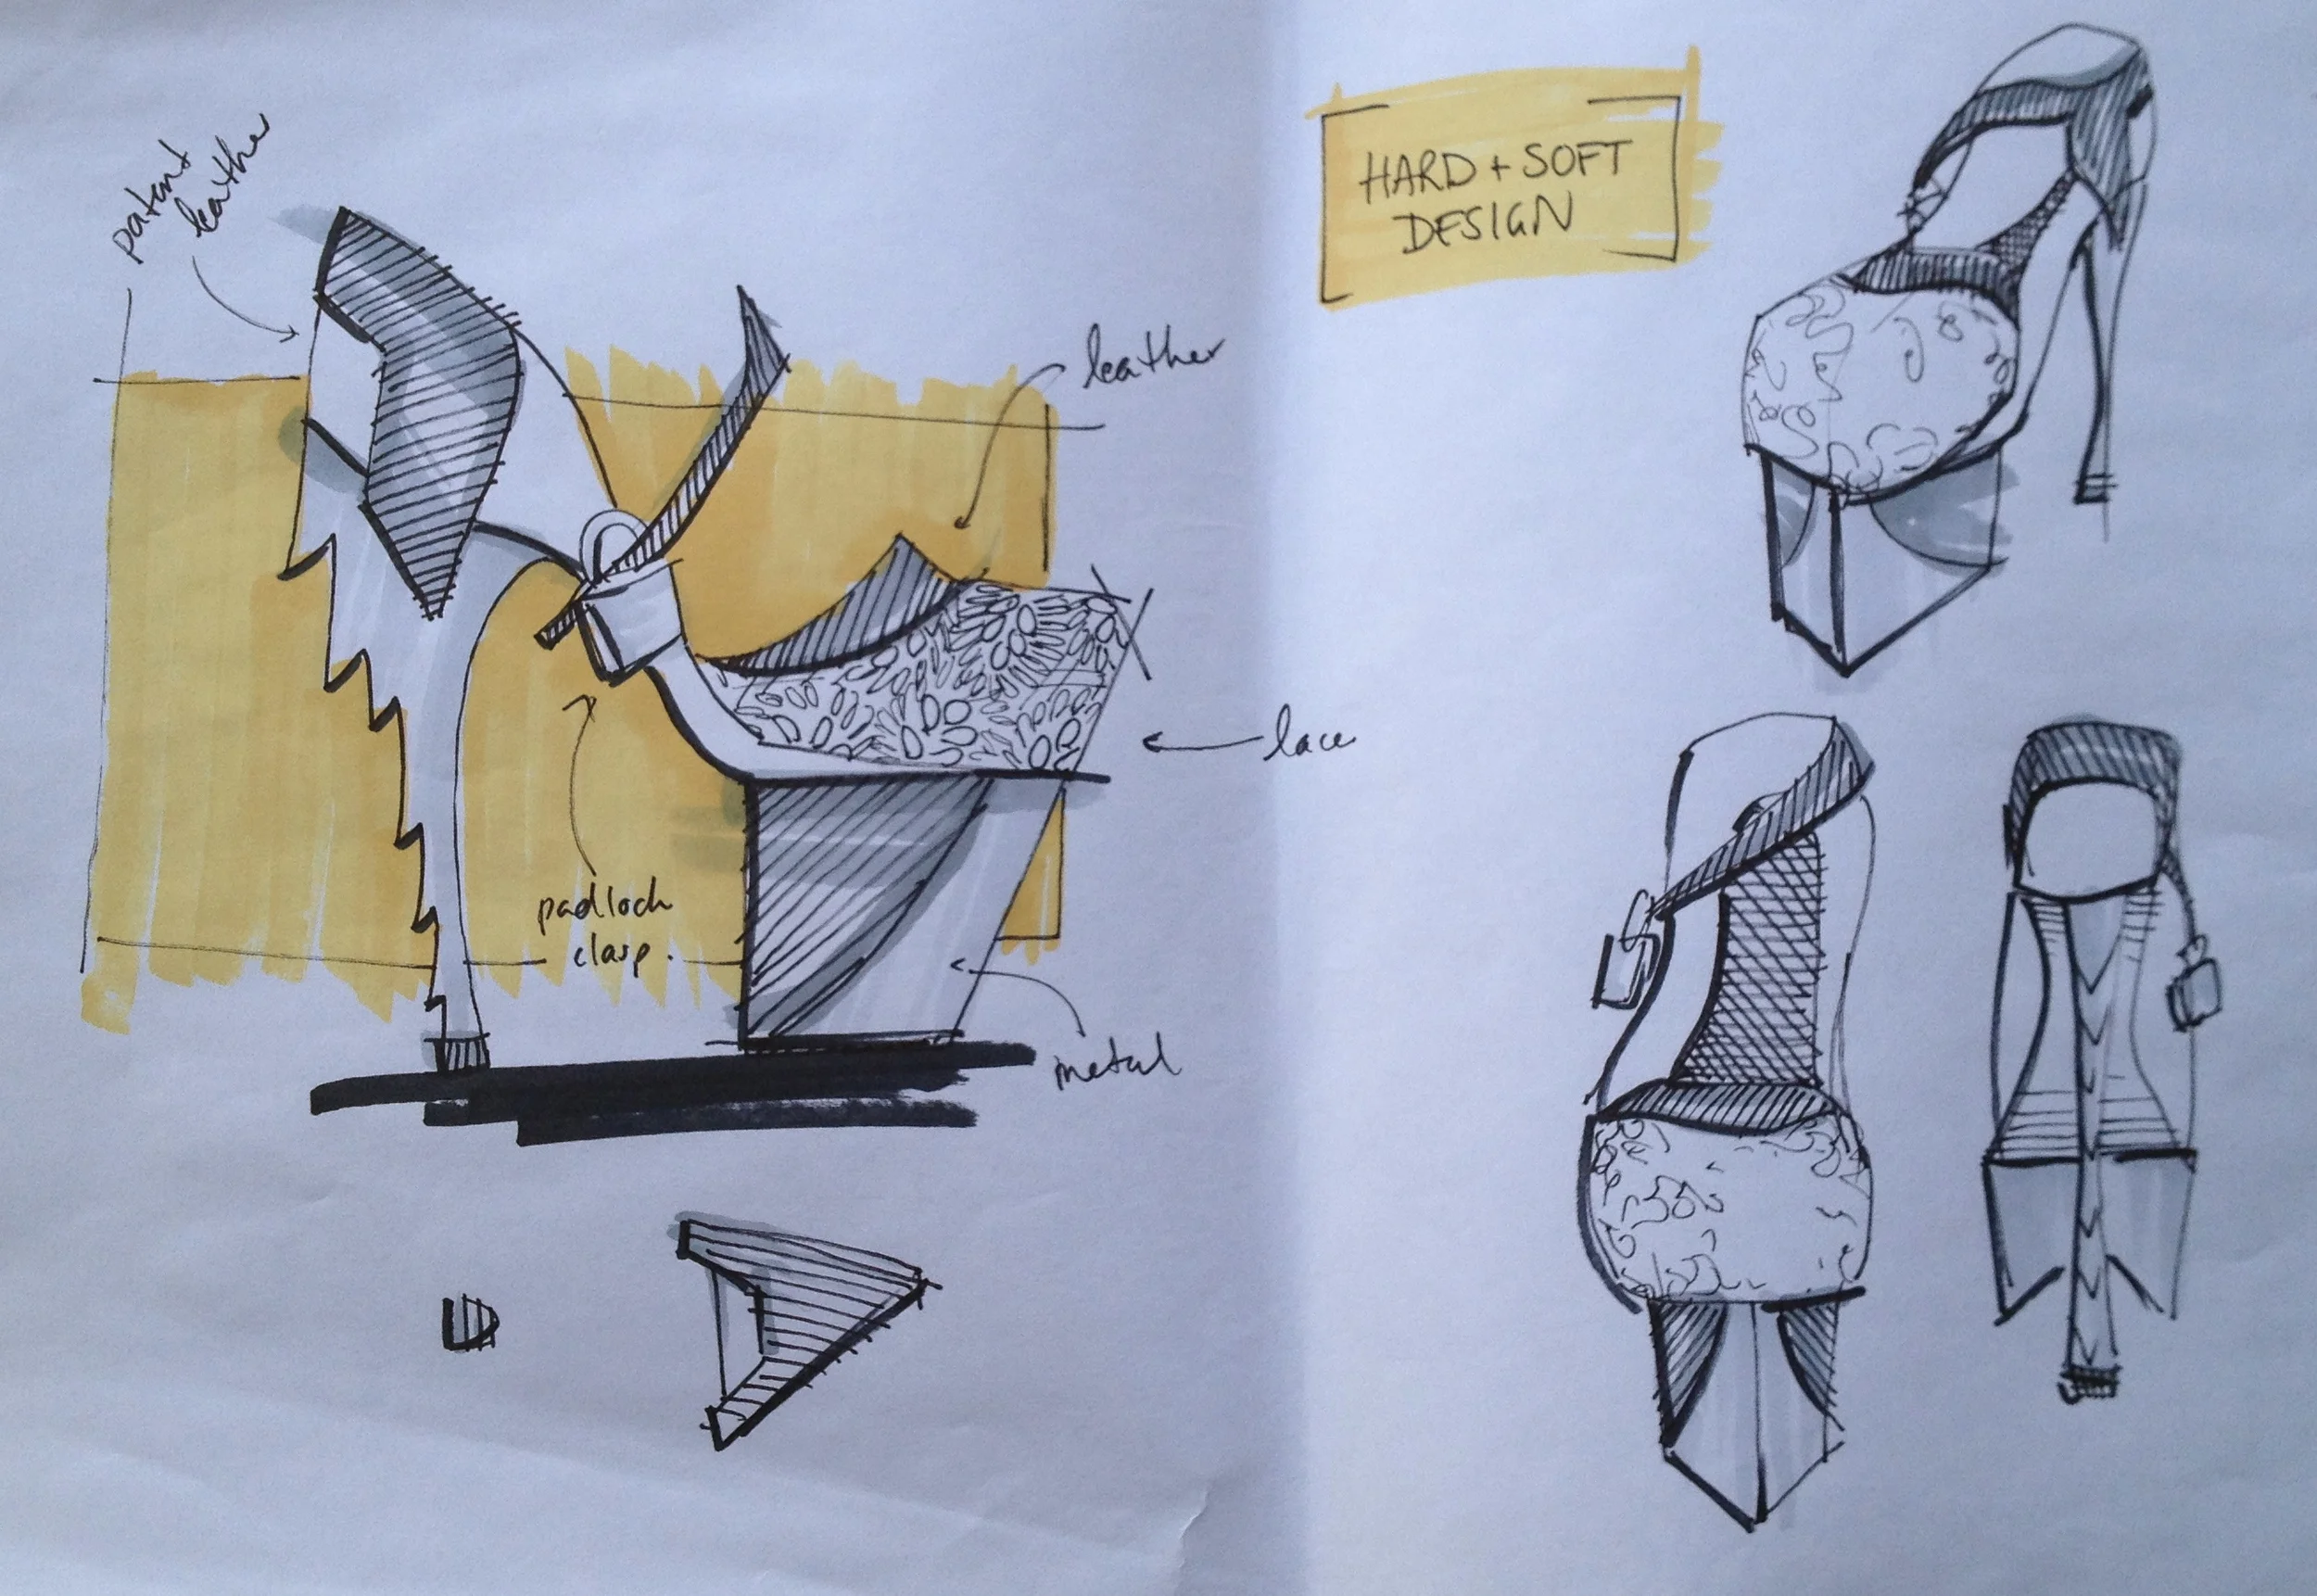 patent
leather
HARD + SOFT
DESIGN
leather
lace
padlock
clasp.
metal